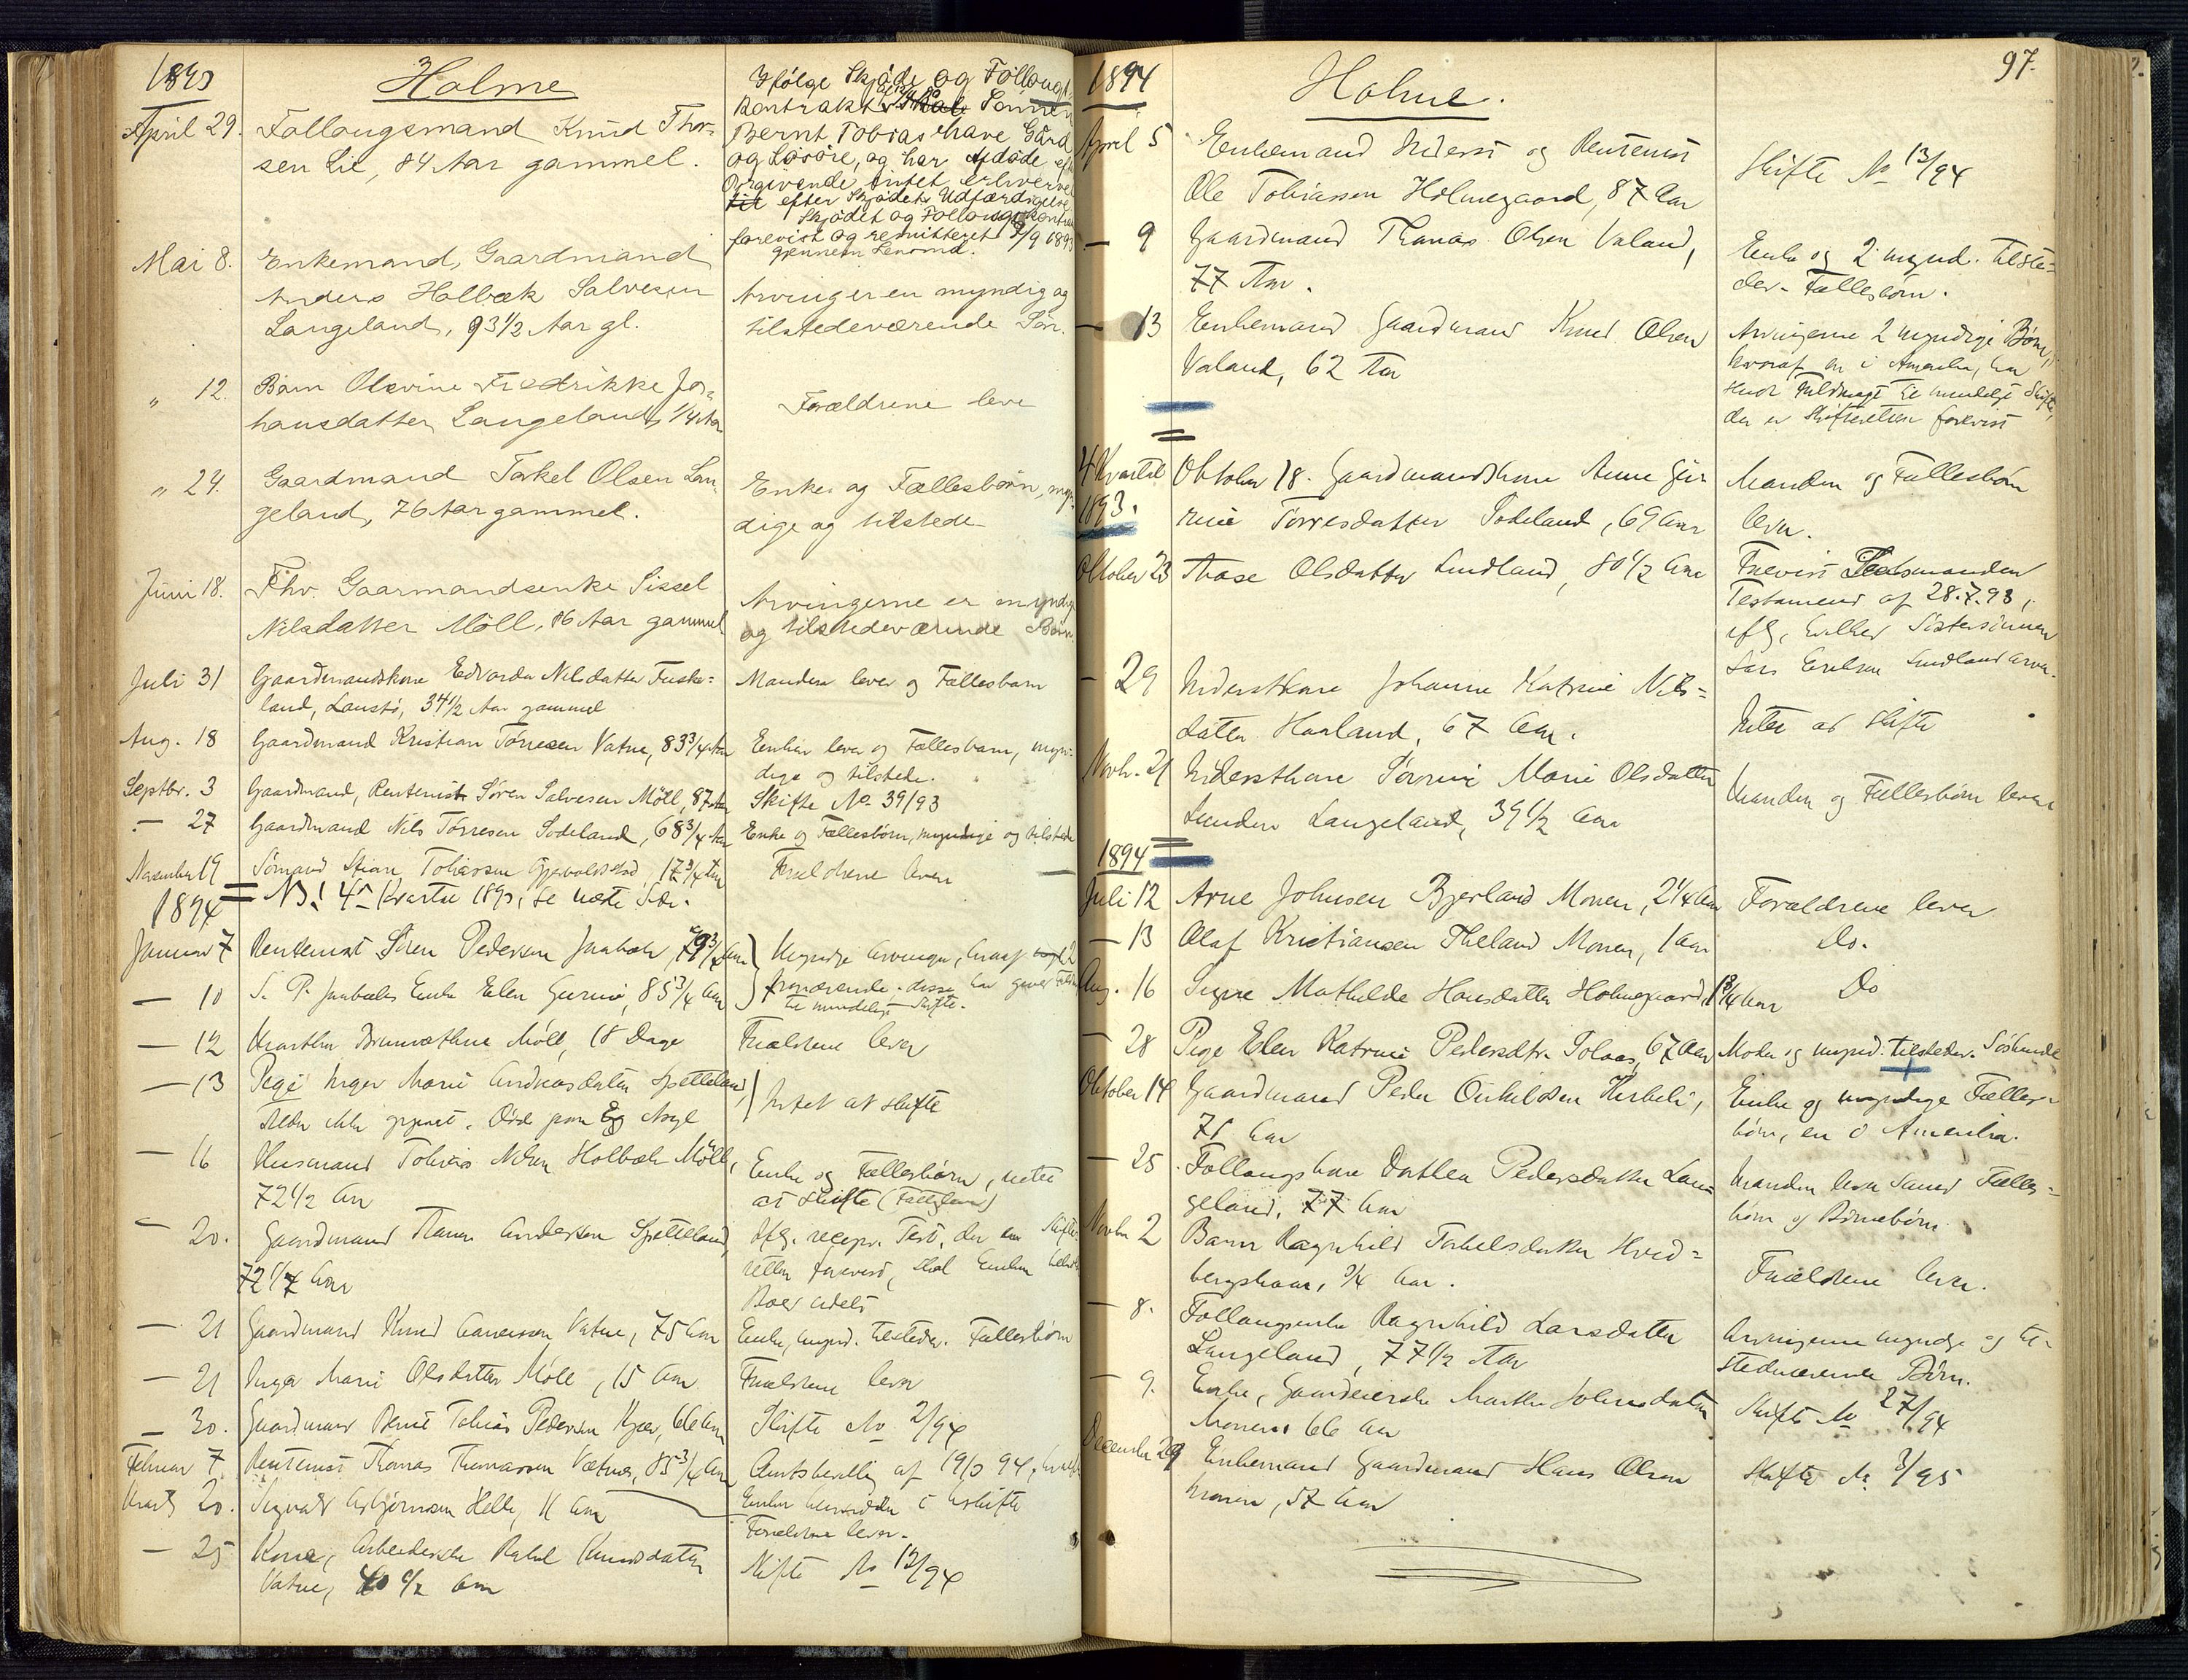 1893
Holme
April 29. Follaugsmand Knud Thor-
sen Lie, 84 Aar gammel.
Ifølge Skjøde og Follaugs
Kontrakt Sønnen
Bernt Tobias have Gård
og Løsøre, og har Afdøde
Opgivende intet erhvervet
efter Skjødets Udfærdigelse
Skjødet og Follaugskontrakt
forevist og remitteret 2/9 1893
gjennem Lensmd.
Mai 8. Enkemand, Gaardmand
Anders Holbæk Salvesen
Langeland, 93 1/2 Aar gl.
Arvingeren myndig og
tilstedeværende Søn.
" 12. Barn Olevine Fredrikke Jo-
hansdatter Langeland, 1/4 Aar
Forældrene leve
" 24. Gaardmand Torkel Olsen Lan-
geland, 76 Aar gammel.
Enke og Fællesbørn, myn-
dige og tilstede
Juni 18. Fhv. Gaarmandsenke Sissel
Nilsdatter Möll, 86 Aar gammel
Arvingerne er myndige
og tilstedeværende Børn
Juli 31 Gaardmandskone Edvarda Nilsdatter Fuske-
land, 34 1/2 Aar gammel
Manden lever og Fællesbarn
Aug. 18 Gaardmand Kristian Tørresen Vatne, 83 3/4 Aar
Enken lever og Fællesbarn, myn-
dige og tilstede.
Septbr. 3 Gaardmand, Rentenist Søren Salvesen Möll, 87 Aar
Skifte No 39/93
— 27 Gaardmand Nils Tørresen Sodeland, 68 3/4 Aar
Enke og Fællesbørn, myndige og tilstede
November 19 Sømand Stian Tobiassen 17 3/4 Aar
Forældrene lever
1894 NB! 4de Kvartal 1893, se næste Side.
Januar 7 Rentenist Søren Pedersen
Myndige Arvinger, hvoraf 2
— 10 S. P. Enke Elen Gurine, 85 3/4 Aar
fraværende. disse har givet
til mindeligt Skifte.
— 12 Martha Möll, 18 Dage
Forældrene lever
— 13 Pige Inger Marie Andreasdatter Spetteland,
Alder ikke opgivet. Død paa Eg Asyl
Intet at skifte
— 16 Husmand Tobias Nilsen Holbæk Möll,
72 1/2 Aar
Enke og Fællesbørn, intet
at skifte
— 20. Gaardmand Andersen Spetteland,
Ifg. recipr. Test. der er Skifte-
retten forevist, skal Enken
Boet udelt
— 21 Gaardmand Knud Aanensen Vatne, 75 Aar
Enke, mynd. tilstedev. Fællesbørn
— 21 Inger Marie Olsdatter Möll, 15 Aar
Forældrene lever
— 30. Gaardmand Bernt Tobias Pedersen Kjær, 66 Aar
Skifte No 2/94
Februar 7. Rentenist Thomas Thomassen Vatne, 85 3/4 Aar
Amtsbevilling af 19/3 94,
Marts 20. Sigvald Asbjørnsen Helle, 11 Aar
Enken hensidder i Uskifte
Forældrene lever.
— 25 Kone, Arbeiderske Rakel Knudsdatter
Vatne, 40 1/2 Aar
Skifte No 12/94
97.
1894
Holme.
April 5 Enkemand Inderst og Rentenist
Ole Tobiassen Holmegaard, 87 Aar
Skifte No 13/94
— 9 Gaardmand Thomas Olsen Valand,
77 Aar.
Enke og 2 mynd. tilste-
dev. Fællesbørn.
— 13 Enkemand Gaardmand Knud Olsen
Valand, 62 Aar
Arvingerne 2 myndige Børn,
hvoraf en i Amerika, har
sendt Fuldmagt til mindeligt Skifte,
der er Skifteretten forevist
4 Kvartal
1893.
Oktober 18. Gaardmandskone Anne Gu-
rine Tørresdatter Sodeland, 69 Aar
Manden og Fællesbørn
lever.
Oktober 23 Thase Olsdatter Lindland, 80 1/2 Aar
Forevist
Testament af 28.7.93,
ifg. hvilket Søstersønnen
Lars Lindland arver.
— 29 Inderstkone Johanne Katrine Nils-
datter Haaland, 67 Aar.
Intet at skifte
Novb. 21 Inderstkone Sørine Marie Olsdatter
Lunden Langeland, 39 1/2 Aar
Manden og Fællesbørn lever
1894
Juli 12 Arne Johnsen Bjerland Monen, 2 1/4 Aar
Forældrene lever
— 13 Olaf Kristiansen Theland Monen, 1 Aar
Do.
Aug. 16 Signe Mathilde Hansdatter Holmegaard, 1 3/4 Aar
Do
— 28 Pige Elen Katrine Pedersdtr. Solaas, 67 Aar
Moder og mynd. tilstedev. Søskende
Oktober 14 Gaardmand Peder Eivindsen Kirkeli,
71 Aar
Enke og myndige Fælles-
børn, en i Amerika.
— 25. Follaugskone Dorthea Pedersdatter Lan-
geland, 77 Aar
Manden lever samt Fælles-
børn og Børnebørn.
Novbr 2 Barn Ragnhild Torkelsdatter Hvid-
bergskaar, 3/4 Aar.
Forældrene lever.
— 8. Follaugsenke Ragnhild Larsdatter
Langeland, 77 1/2 Aar
Arvingerne myndige og til-
stedeværende Børn.
— 9. Enke, Gaardeierske Marthe Johnsdatter
Monen 66 Aar
Skifte No 27/94
December 29 Enkemand Gaardmand Hans Olsen
Monen, 57 Aar
Skifte No 3/95